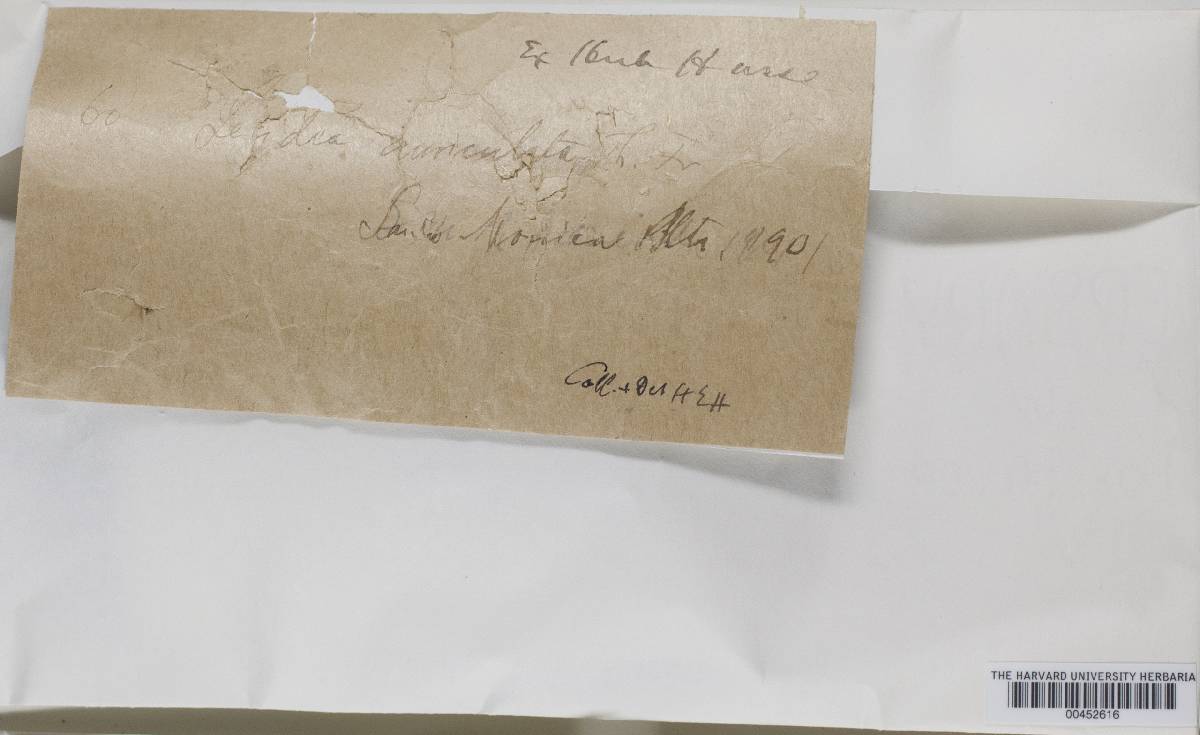 Ex Herb Hasse
60 Lecidea auriculata Th. Fr
Santa Monica Mts, 1890/
Coll. + Det H E H
THE HARVARD UNIVERSITY HERBARIA
00452616